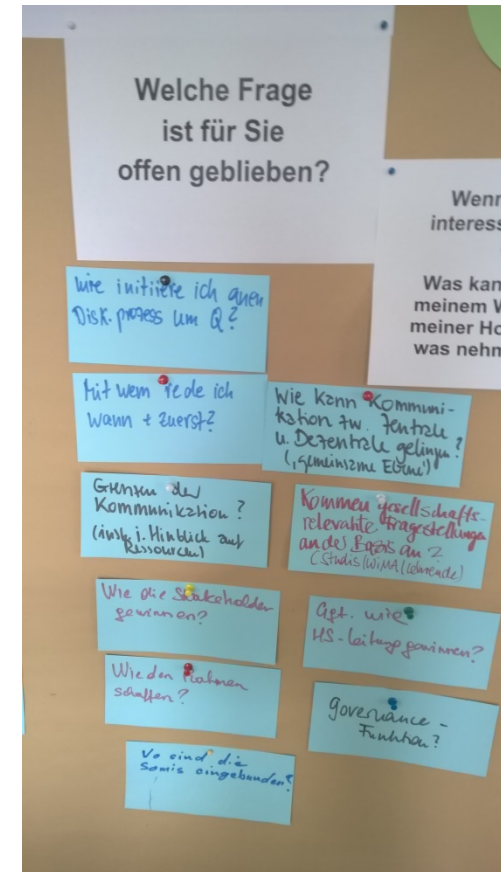 Welche Frage
ist für Sie
offen geblieben?
Wenn
interess
Was kan
meinem W
meiner Ho
was nehm
Wie initiiere ich einen
Disk.prozess um Q?
Mit wem rede ich
wann + zuerst?
Wie kann Kommuni-
kation zw. Zentrale
u. Dezentrale gelingen?
("gemeinsame Ebene")
Grenzen der
Kommunikation?
(insb. i. Hinblick auf
Ressourcen)
Kommen gesellschafts-
relevante Fragestellungen
an der Basis an?
(Studis/WiMA/Lehrende)
Wie die Stakeholder
gewinnen?
Ggf. wie
HS-leitung gewinnen?
Wie den Rahmen
schaffen?
Governance-
Funktion?
Wo sind die
Somis eingebunden?